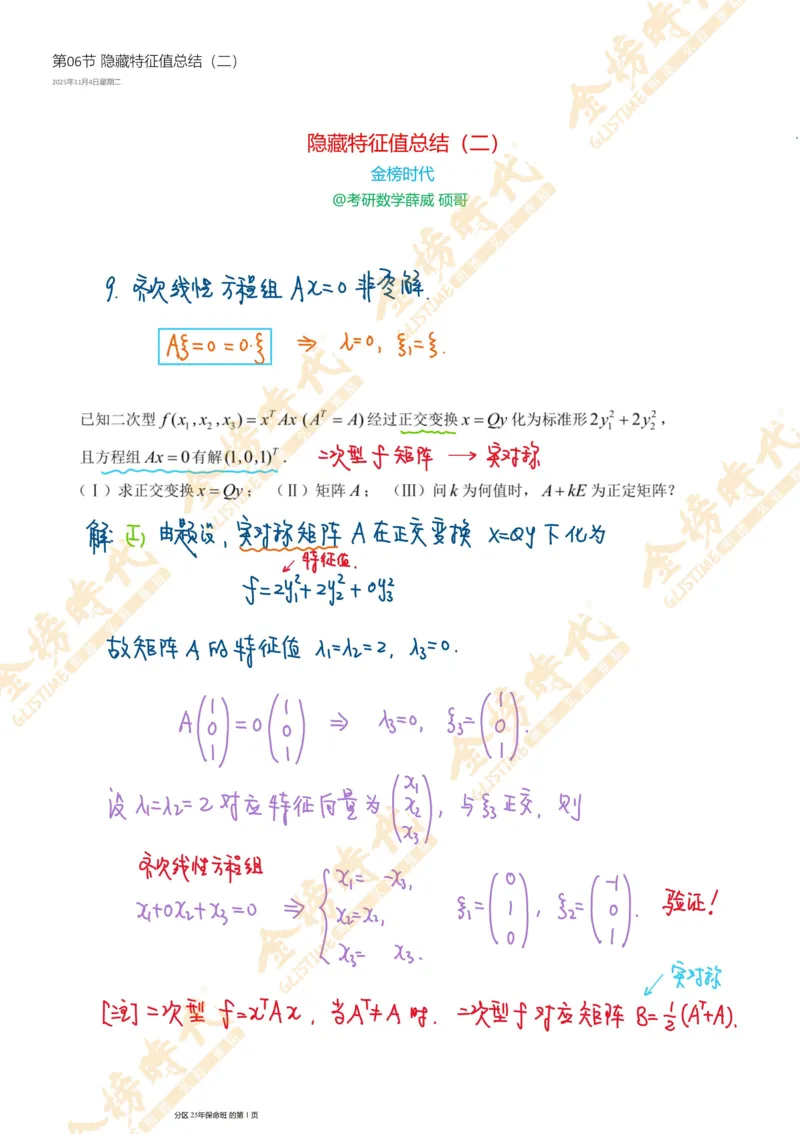 第06节 隐藏特征值总结（二）
2025年11月4日星期二
隐藏特征值总结（二）
金榜时代
@考研数学薛威 硕哥
9. 齐次线性方程组 Ax=0 非零解.
Aξ=0=0·ξ ⇒ λ=0, ξ₁=ξ.
已知二次型 f(x₁,x₂,x₃)=xᵀAx (Aᵀ=A)经过正交变换x=Qy化为标准形2y₁²+2y₂²，
且方程组Ax=0有解(1,0,1)ᵀ. 二次型f矩阵 → 实对称
（Ⅰ）求正交变换x=Qy； （Ⅱ）矩阵A； （Ⅲ）问k为何值时，A+kE为正定矩阵？
解 (I) 由题设, 实对称矩阵 A 在正交变换 x=Qy 下化为
特征值.
f=2y₁²+2y₂²+0y₃²
故矩阵A的特征值 λ₁=λ₂=2, λ₃=0.
A(1 0 1)=0(1 0 1) ⇒ λ₃=0, ξ₃=(1 0 1).
设λ₁=λ₂=2对应特征向量为(x₁ x₂ x₃), 与ξ₃正交, 则
齐次线性方程组
x₁+0x₂+x₃=0 ⇒ { x₁= -x₃, x₂=x₂, x₃= x₃. ξ₁=(0 1 0), ξ₂=(-1 0 1). 验证!
实对称
[注] 二次型 f=xᵀAx, 当Aᵀ≠A时. 二次型f对应矩阵 B=½(Aᵀ+A).
分区 25年保命班 的第 1 页
金榜時代
GLISTIME